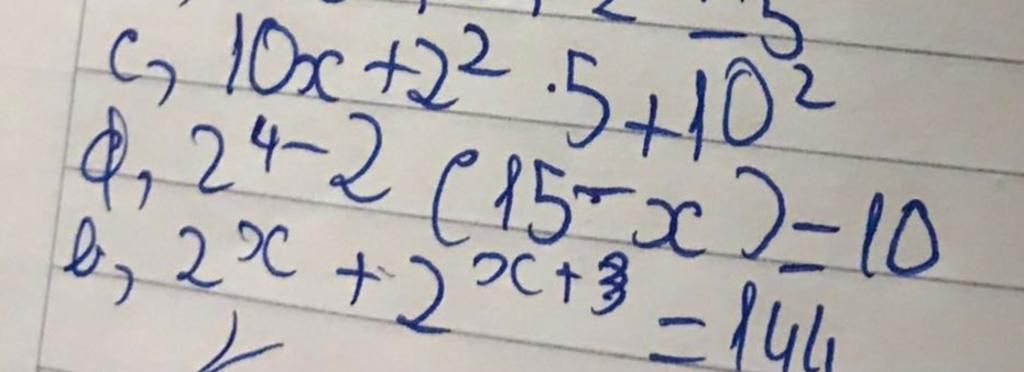 c, 10x + 2² . 5 + 10²
d, 2⁴ - 2 (15 - x) = 10
e, 2ˣ + 2ˣ⁺³ = 144